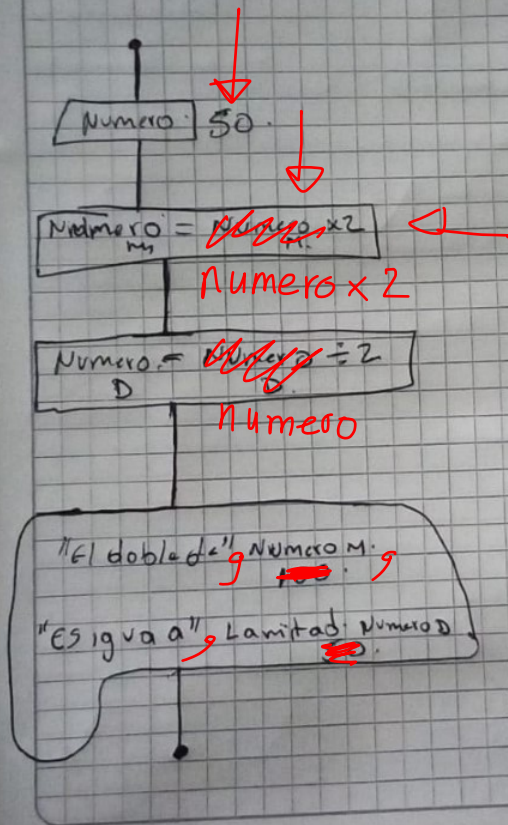 Numero. 50.
Numero M = Numero M. x2
numero x 2
Numero D = Numero D ÷ 2
numero
"El doble de", Numero M. ,
"Es igua a", La mitad: Numero D